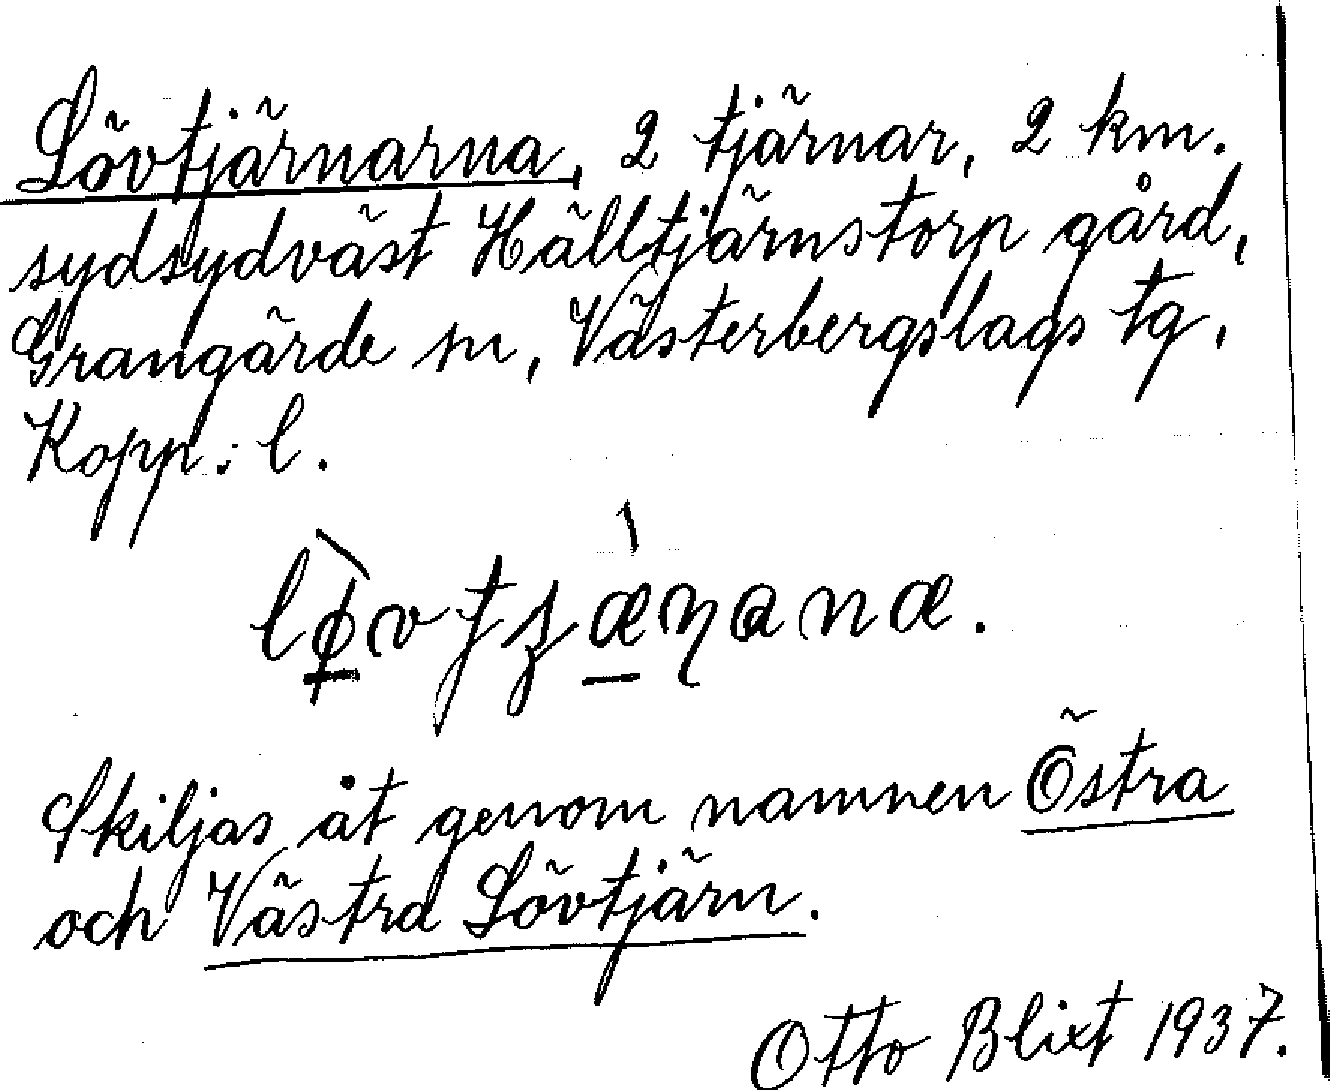 Lövtjärnarna, 2 tjärnar, 2 km.
sydsydväst Hälltjärnstorp gård,
Grangärde sn, Västerbergslags tg,
Kopp. l.
Skiljas åt genom namnen Östra
och Västra Lövtjärn.
Otto Blixt 1937.